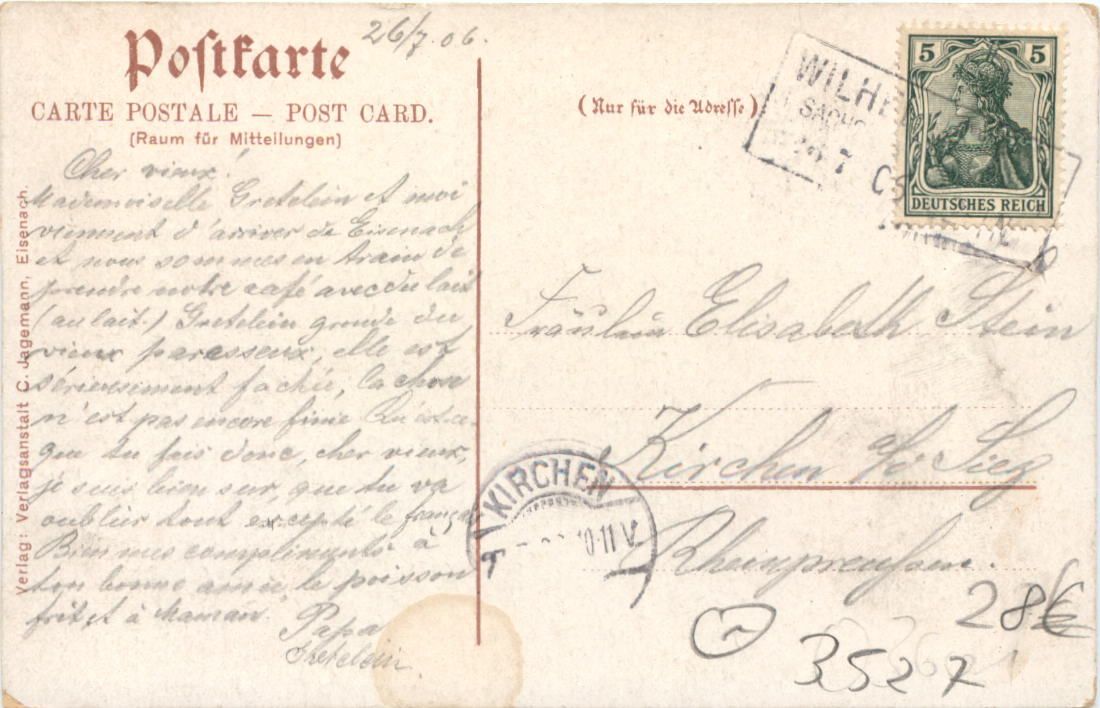 Postkarte
26/7.06.
CARTE POSTALE — POST CARD.
(Raum für Mitteilungen)
Cher vieux!
Mademoiselle Gretelein et moi
viennent d'arriver de Eisenach
et nous sommes en train de
prendre notre café avec du lait
(au lait.) Gretelein gronde du
vieux paresseux, elle est
sérieusiment fachée, la chose
n'est pas encore finie. Qu'est-ce-
que tu fais donc, cher vieux,
je suis bien sur, que tu va
oublier tout excepté le français
Bien mes compliments à
ton bonne amie, le poisson
frit, et à Maman.
Papa
Gretelein
Verlag: Verlagsanstalt C. Jagemann, Eisenach.
(Nur für die Adresse)
WILH
SACHS
26 7
5 5
DEUTSCHES REICH
Fräulein Elisabeth Stein
Kirchen a/d Sieg
Rheinpreußen.
KIRCHEN
10-11 V.
28€
3527